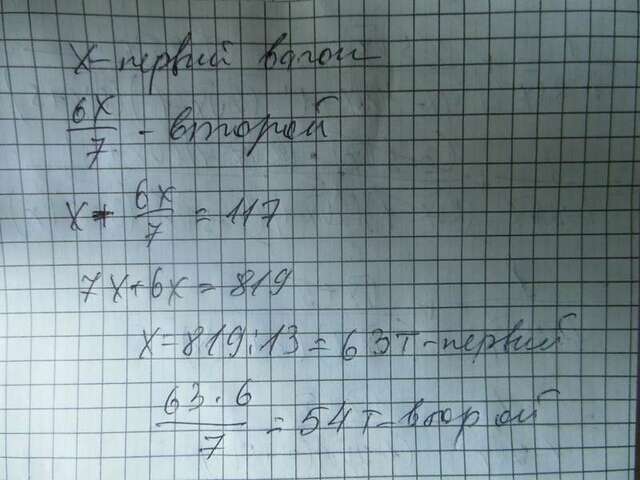 x - первий вагон
6x/7 - второй
x + 6x/7 = 117
7x+6x = 819
x = 819:13 = 63т - первий
63·6/7 = 54т - второй